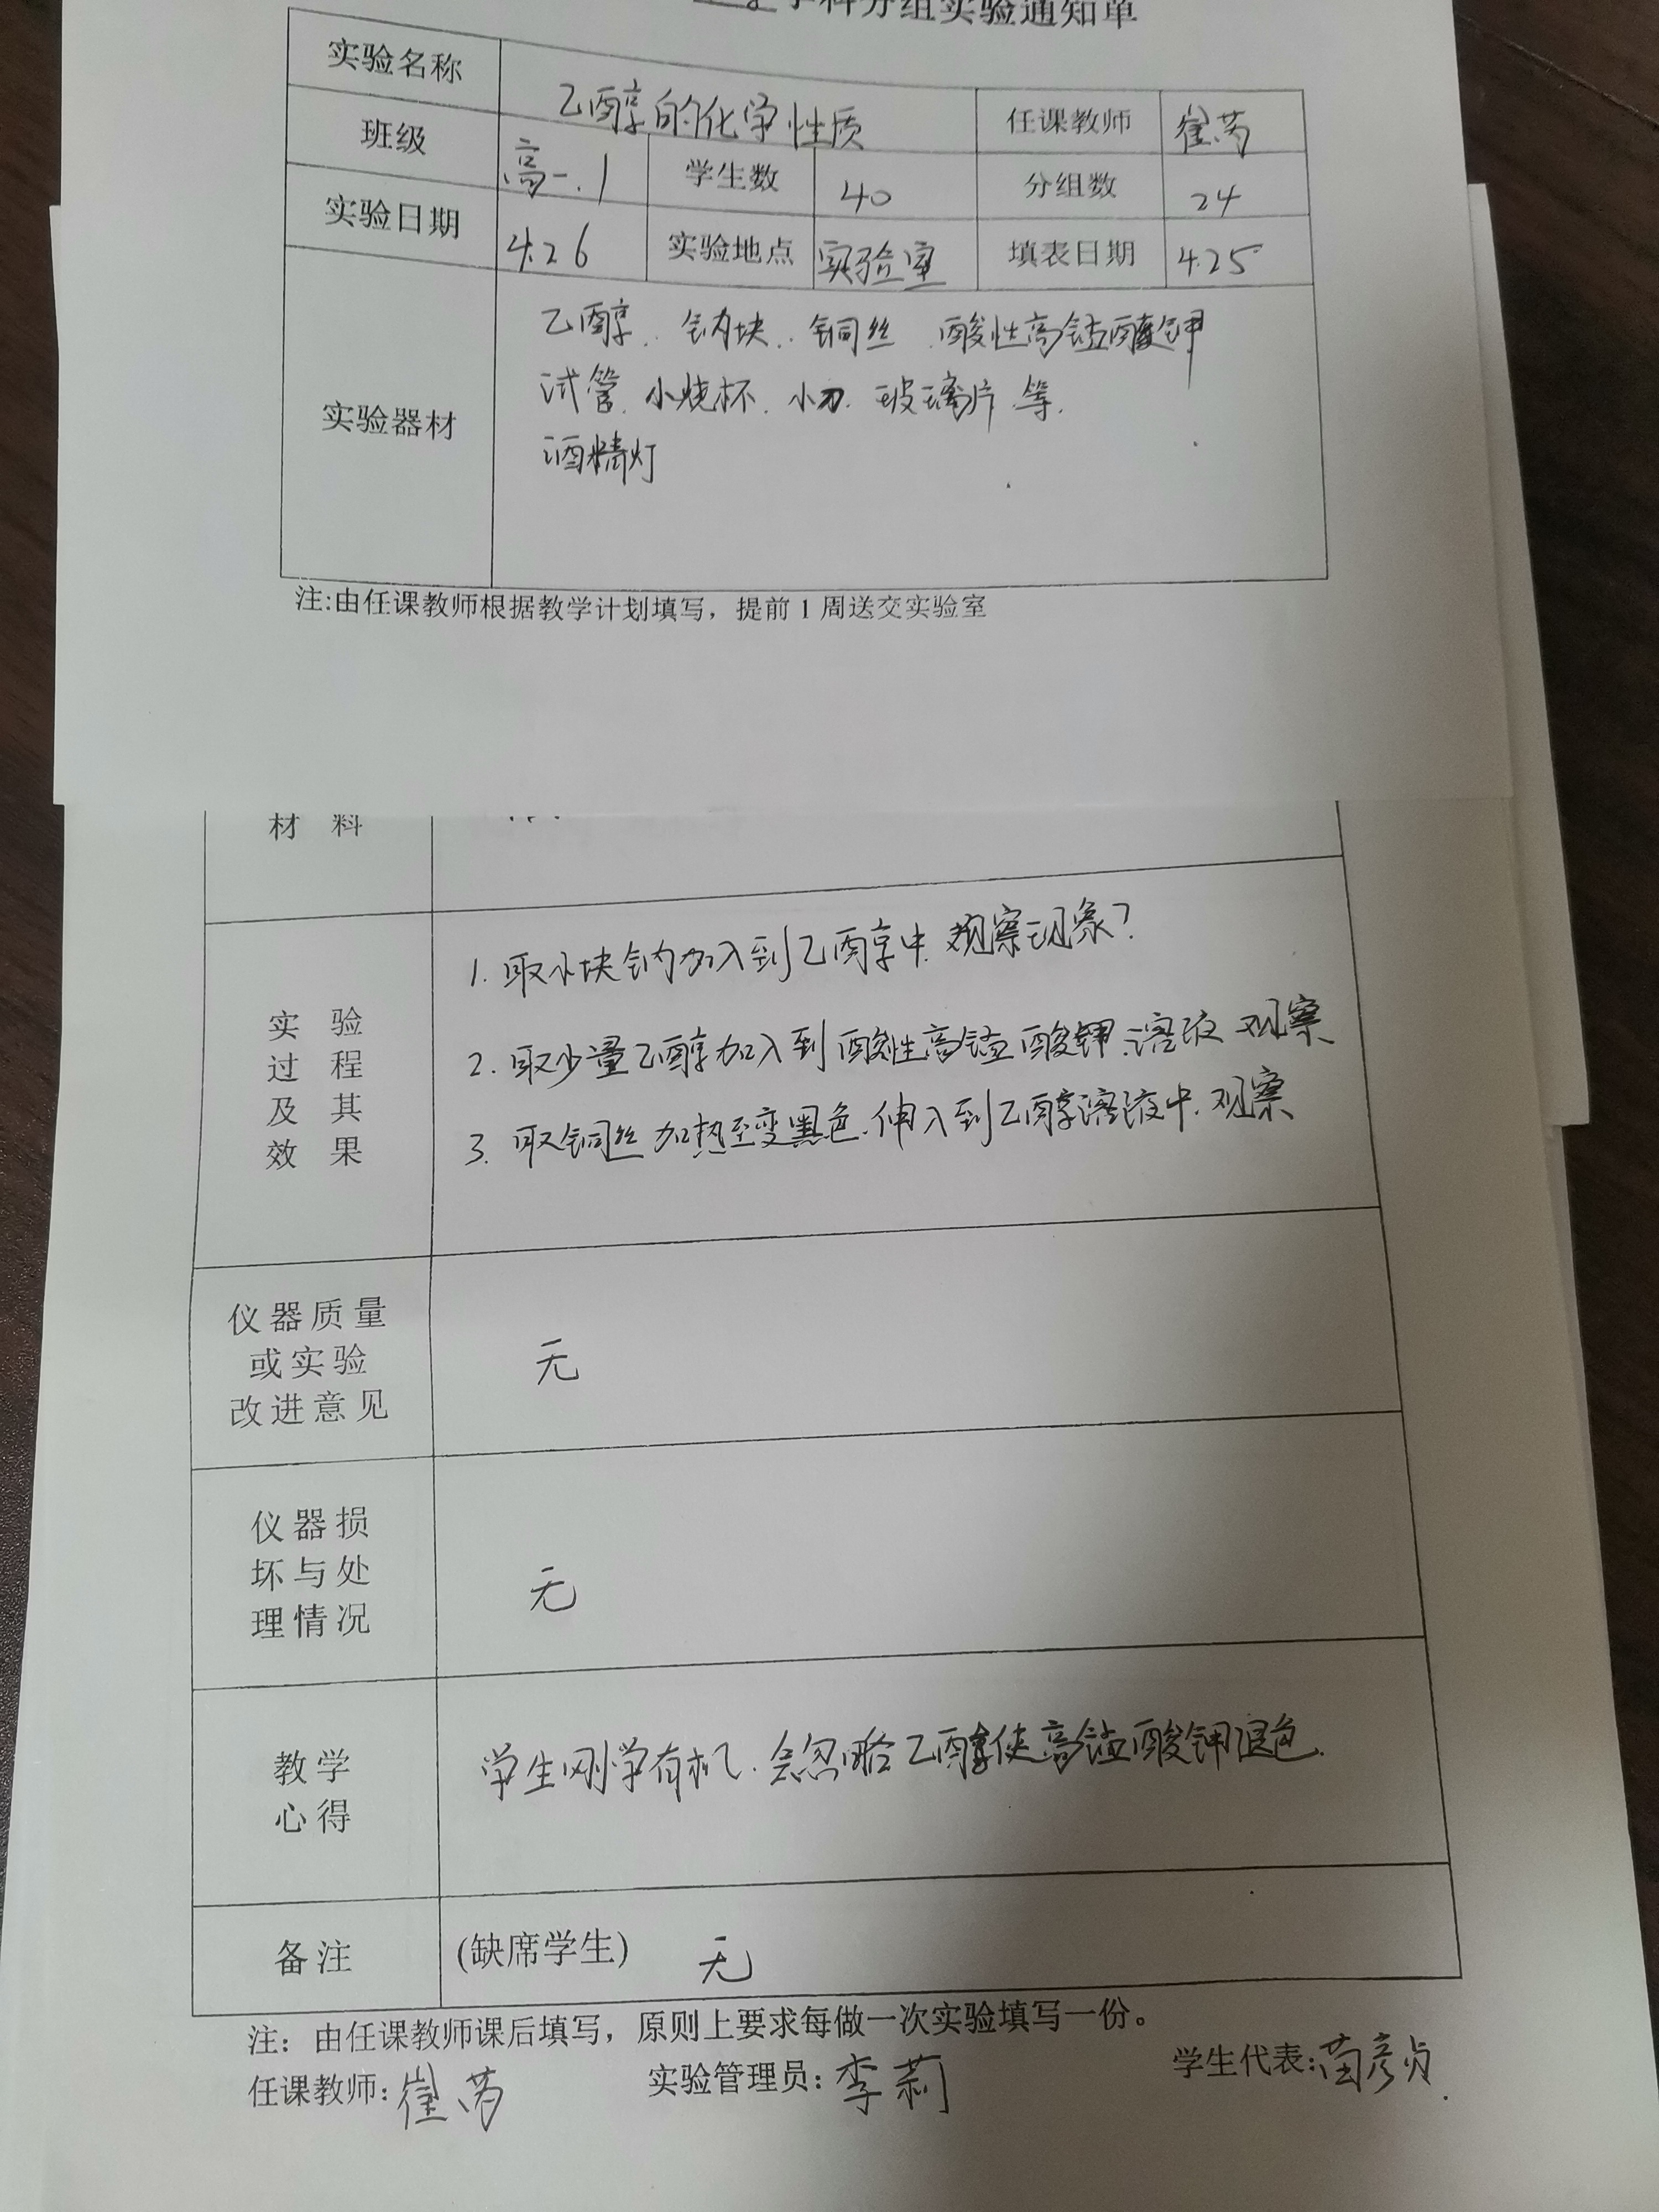 学科分组实验通知单
实验名称 乙醇的化学性质 任课教师 崔芮
班级 高一.1 学生数 40 分组数 24
实验日期 4.26 实验地点 实验室 填表日期 4.25
实验器材
乙醇. 钠块. 铜丝 .酸性高锰酸钾
试管. 小烧杯. 小刀. 玻璃片 等.
酒精灯
注:由任课教师根据教学计划填写，提前1周送交实验室
材 料
实 验
过 程
及 其
效 果
1. 取小块钠加入到乙醇中. 观察现象?
2. 取少量乙醇加入到酸性高锰酸钾溶液 观察
3. 取铜丝加热至变黑色.伸入到乙醇溶液中.观察
仪器质量
或实验
改进意见
无
仪器损
坏与处
理情况
无
教学
心得
学生刚学有机.会忽略乙醇使高锰酸钾退色.
备注 (缺席学生) 无
注：由任课教师课后填写，原则上要求每做一次实验填写一份。
任课教师:崔芮 实验管理员:李莉 学生代表:苗彦贞